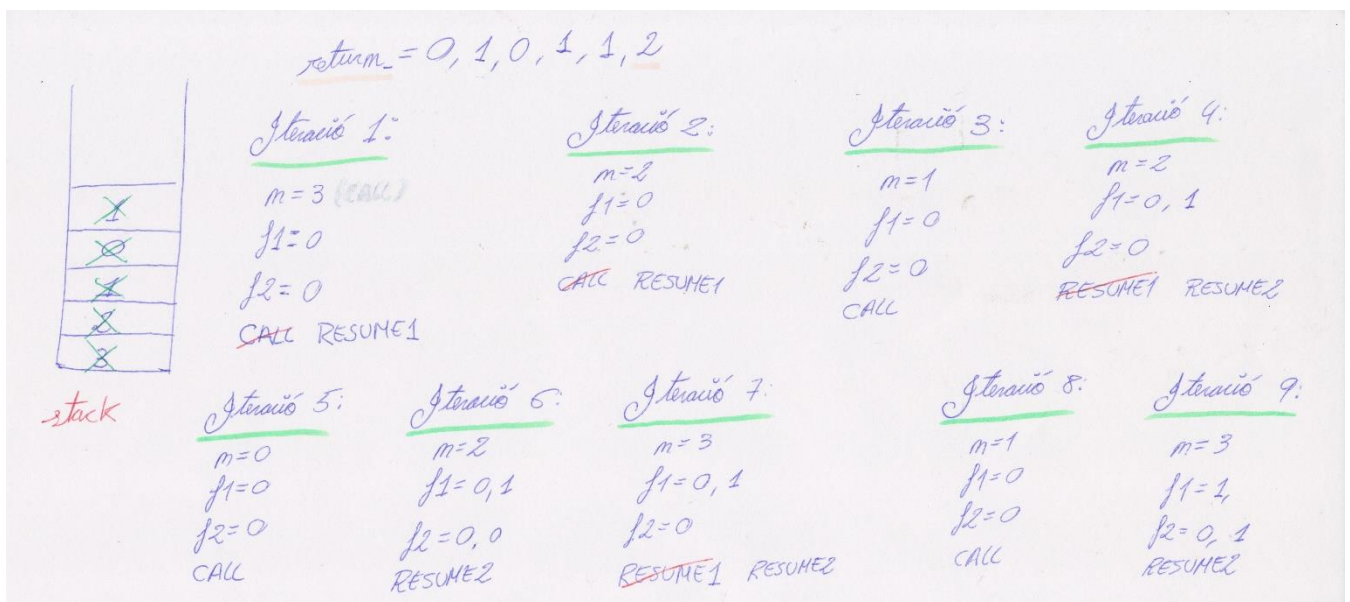 return_ = 0, 1, 0, 1, 1, 2
Iteració 1:
n=3 (CALL)
f1=0
f2=0
CALL RESUME1
Iteració 2:
n=2
f1=0
f2=0
CALL RESUME1
Iteració 3:
n=1
f1=0
f2=0
CALL
Iteració 4:
n=2
f1=0, 1
f2=0
RESUME1 RESUME2
1
0
1
2
3
stack
Iteració 5:
n=0
f1=0
f2=0
CALL
Iteració 6:
n=2
f1=0,1
f2=0,0
RESUME2
Iteració 7:
n=3
f1=0, 1
f2=0
RESUME1 RESUME2
Iteració 8:
n=1
f1=0
f2=0
CALL
Iteració 9:
n=3
f1=1,
f2=0, 1
RESUME2